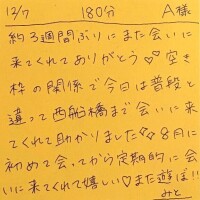 12/7 180分 A様
約3週間ぶりにまた会いに
来てくれてありがとう♡空き
枠の関係で今日は普段と
違って西船橋まで会いに来
てくれて助かりました☆☆8月に
初めて会ってから定期的に会
いに来てくれて嬉しい♡また遊ぼ!!
みと